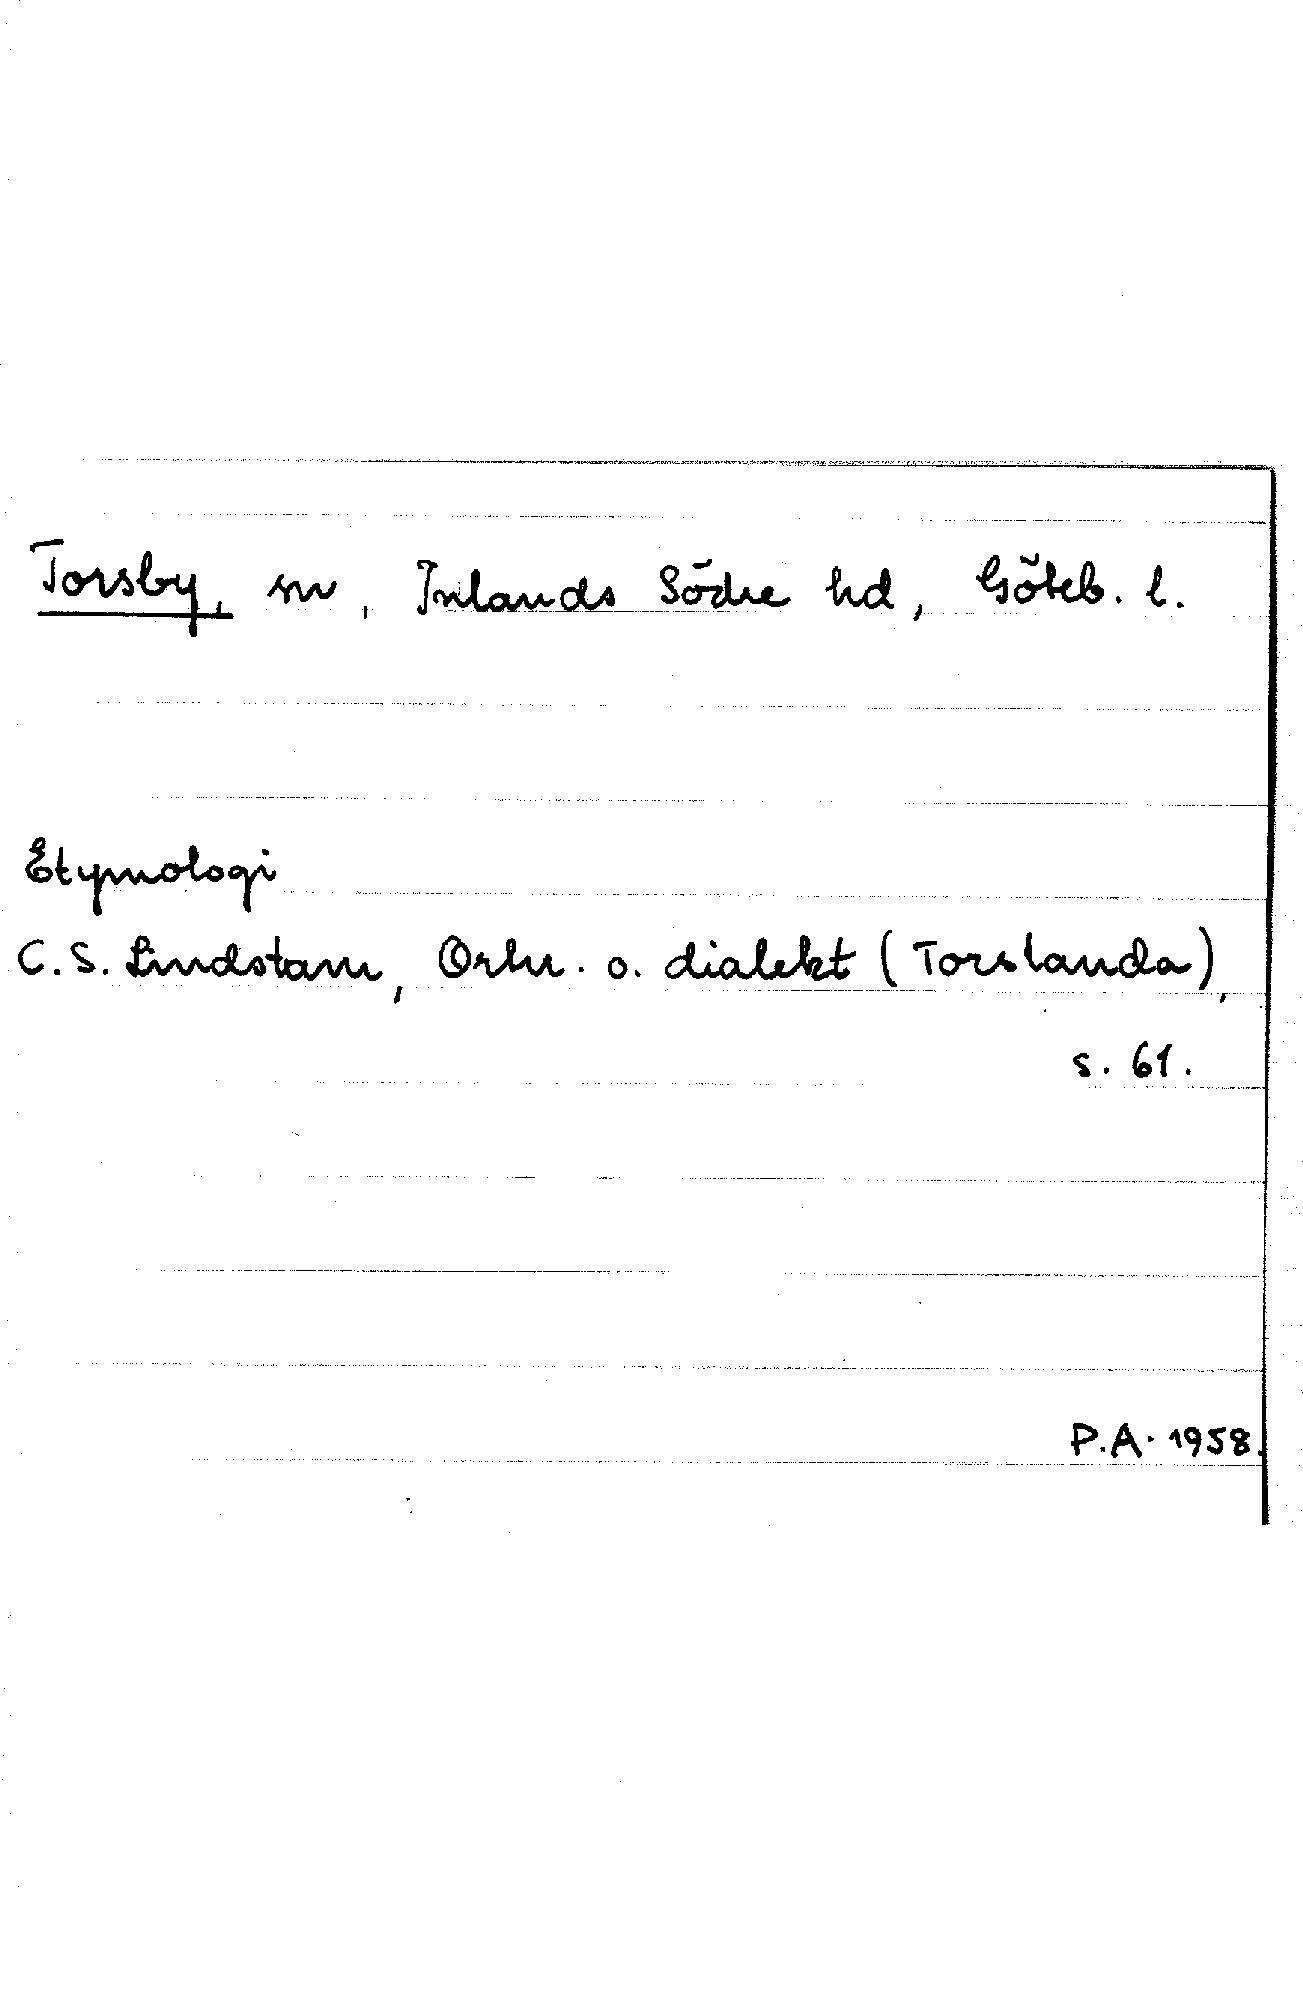 Torsby, sn, Inlands Södre hd, Göteb. l.
Etymologi
C.S. Lindstam, Ortn. o. dialekt (Torslanda),
s. 61.
P.A. 1958.